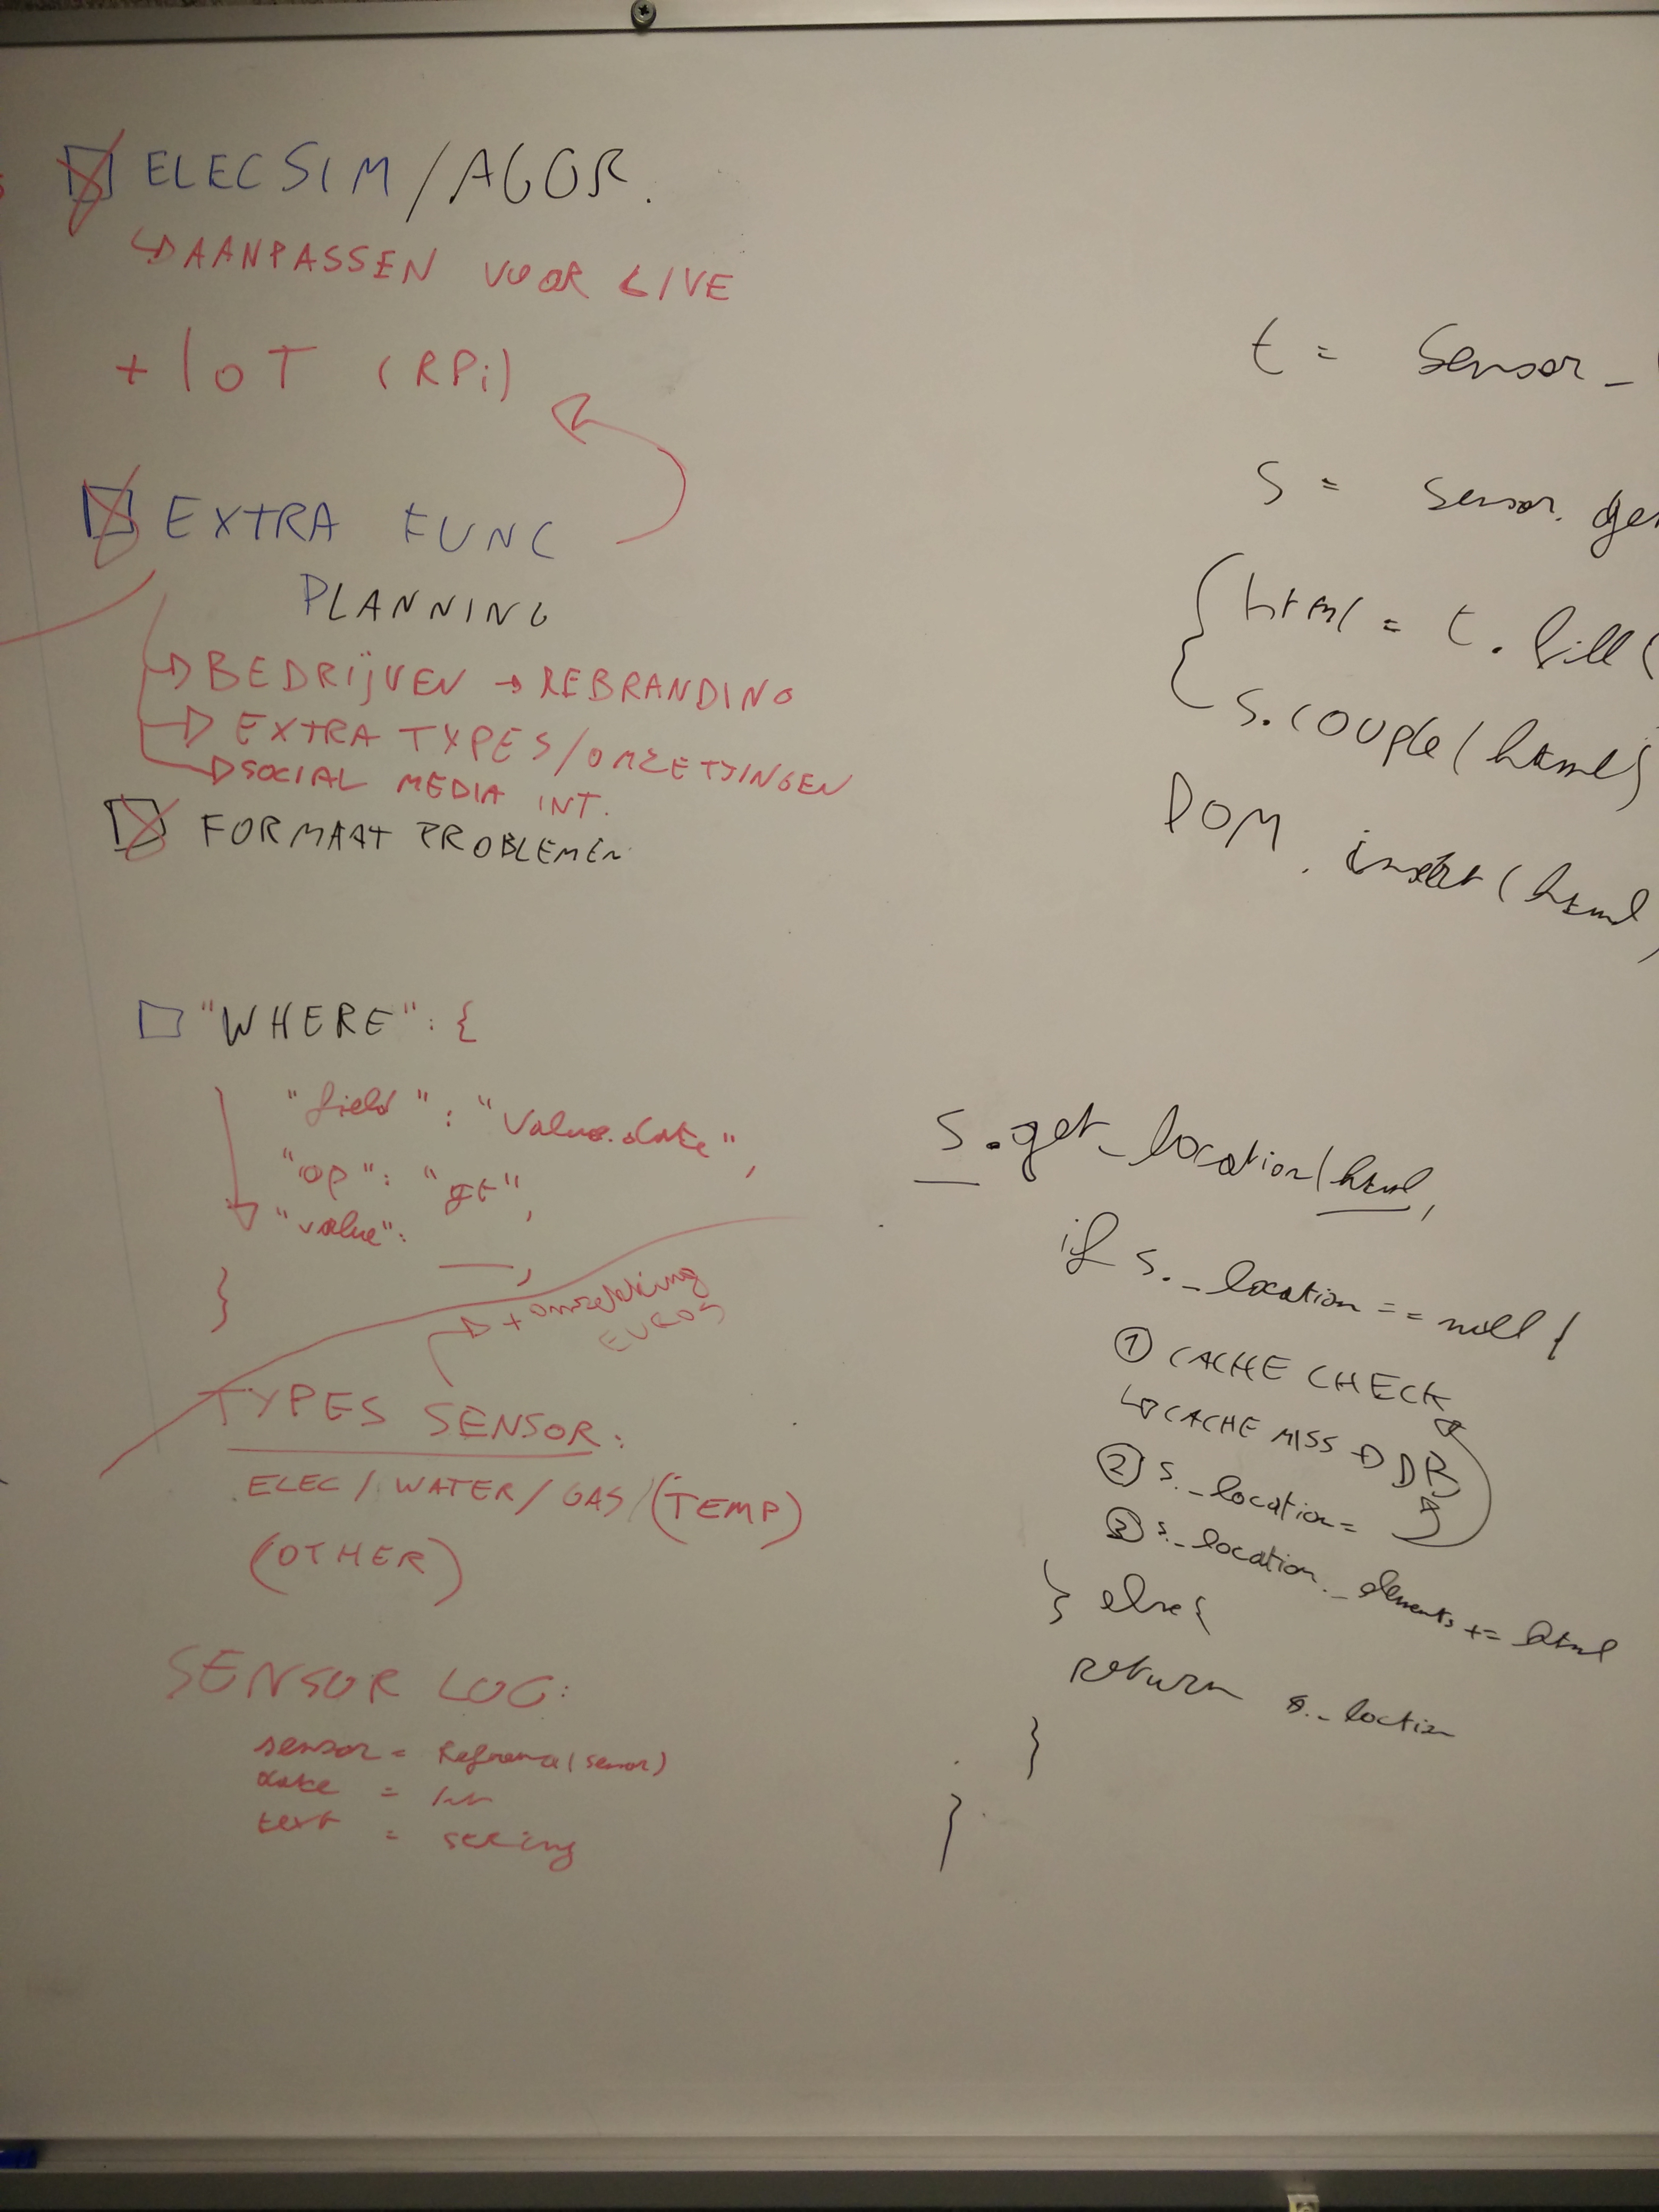 ELECSIM/AGGR.
↳AANPASSEN VOOR LIVE
+ IoT (RPi)
EXTRA FUNC
PLANNING
→ BEDRIJVEN → REBRANDING
→ EXTRA TYPES/OMZETTINGEN
→ SOCIAL MEDIA INT.
FORMAAT PROBLEMEN
"WHERE": {
"field": "Value.date",
"op": "gt",
"value": __,
}
+ omzetting
EUROS
TYPES SENSOR:
ELEC/WATER/GAS/(TEMP)
(OTHER)
SENSOR LOG:
sensor = Reference(sensor)
date = Int
text = string
t = Sensor_
s = sensor.
{ html = t.fill(
s.couple(html)
DOM.insert(html)
s.get_location(html,
if s._location == null {
① CACHE CHECK
↳ CACHE MISS → DB
② s._location =
③ s._location._elements += html
} else {
return s._loction
}
}